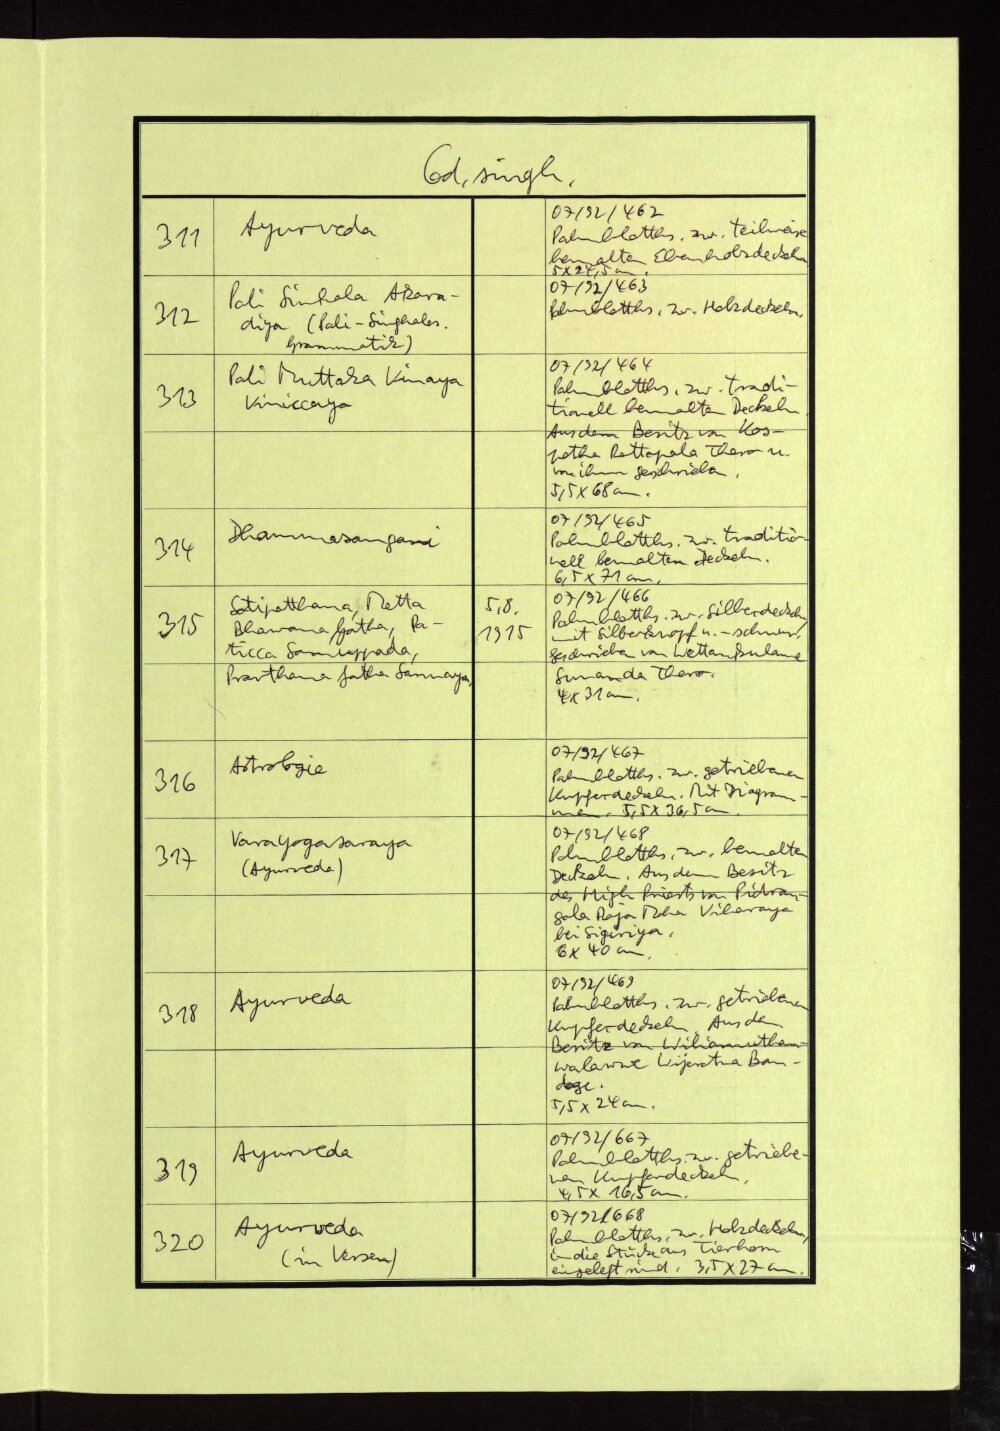 Cod. singh.
311
Ayurveda
07/92/462
Palmblatths. zw. teilweise
bemalten Ebenholzdeckeln
5x24,5 cm.
312
Pali Sinhala Akara-
diya (Pali-Singhales.
Grammatik)
07/92/463
Palmblatths. zw. Holzdeckeln.
313
Pali Muttaka Vinaya
Viniccaya
07/92/464
Palmblatths. zw. tradi-
tionell bemalten Deckeln
Aus dem Besitz von
Rattapala Thero u.
von ihm geschrieben.
5,5x68 cm.
314
Dhammasangani
07/92/465
Palmblatths. zw. traditio-
nell bemalten Deckeln.
6,5x71 cm.
315
Satipatthana, Metta
Bhawana Gatha, Pa-
ticca Samuppada,
Prarthana Gatha Sannaya,
5.8.
1915
07/92/466
Palmblatths. zw. Silberdeckeln
mit Silberknopf u. -schnur,
geschrieben von
Sunanda Thero.
4x31 cm.
316
Astrologie
07/92/467
Palmblatths. zw. getriebenen
Kupferdeckeln. Mit Diagram-
men. 5,5x36,5 cm.
317
Varayogasaraya
(Ayurveda)
07/92/468
Palmblatths. zw. bemalten
Deckeln. Aus dem Besitz
des High Priests von Pidran-
gala Raja Maha Viharaya
bei Sigiriya.
6x40 cm.
318
Ayurveda
07/92/469
Palmblatths. zw. getriebenen
Kupferdeckeln. Aus dem
Besitz von
Wijeratna Ban-
dage.
5,5x24 cm.
319
Ayurveda
07/92/667
Palmblatths. zw. getriebe-
nen Kupferdeckeln.
4,5x16,5 cm.
320
Ayurveda
(in Versen)
07/92/668
Palmblatths. zw. Holzdeckeln,
in die Stücke aus Tierhorn
eingelegt sind. 3,5x27 cm.